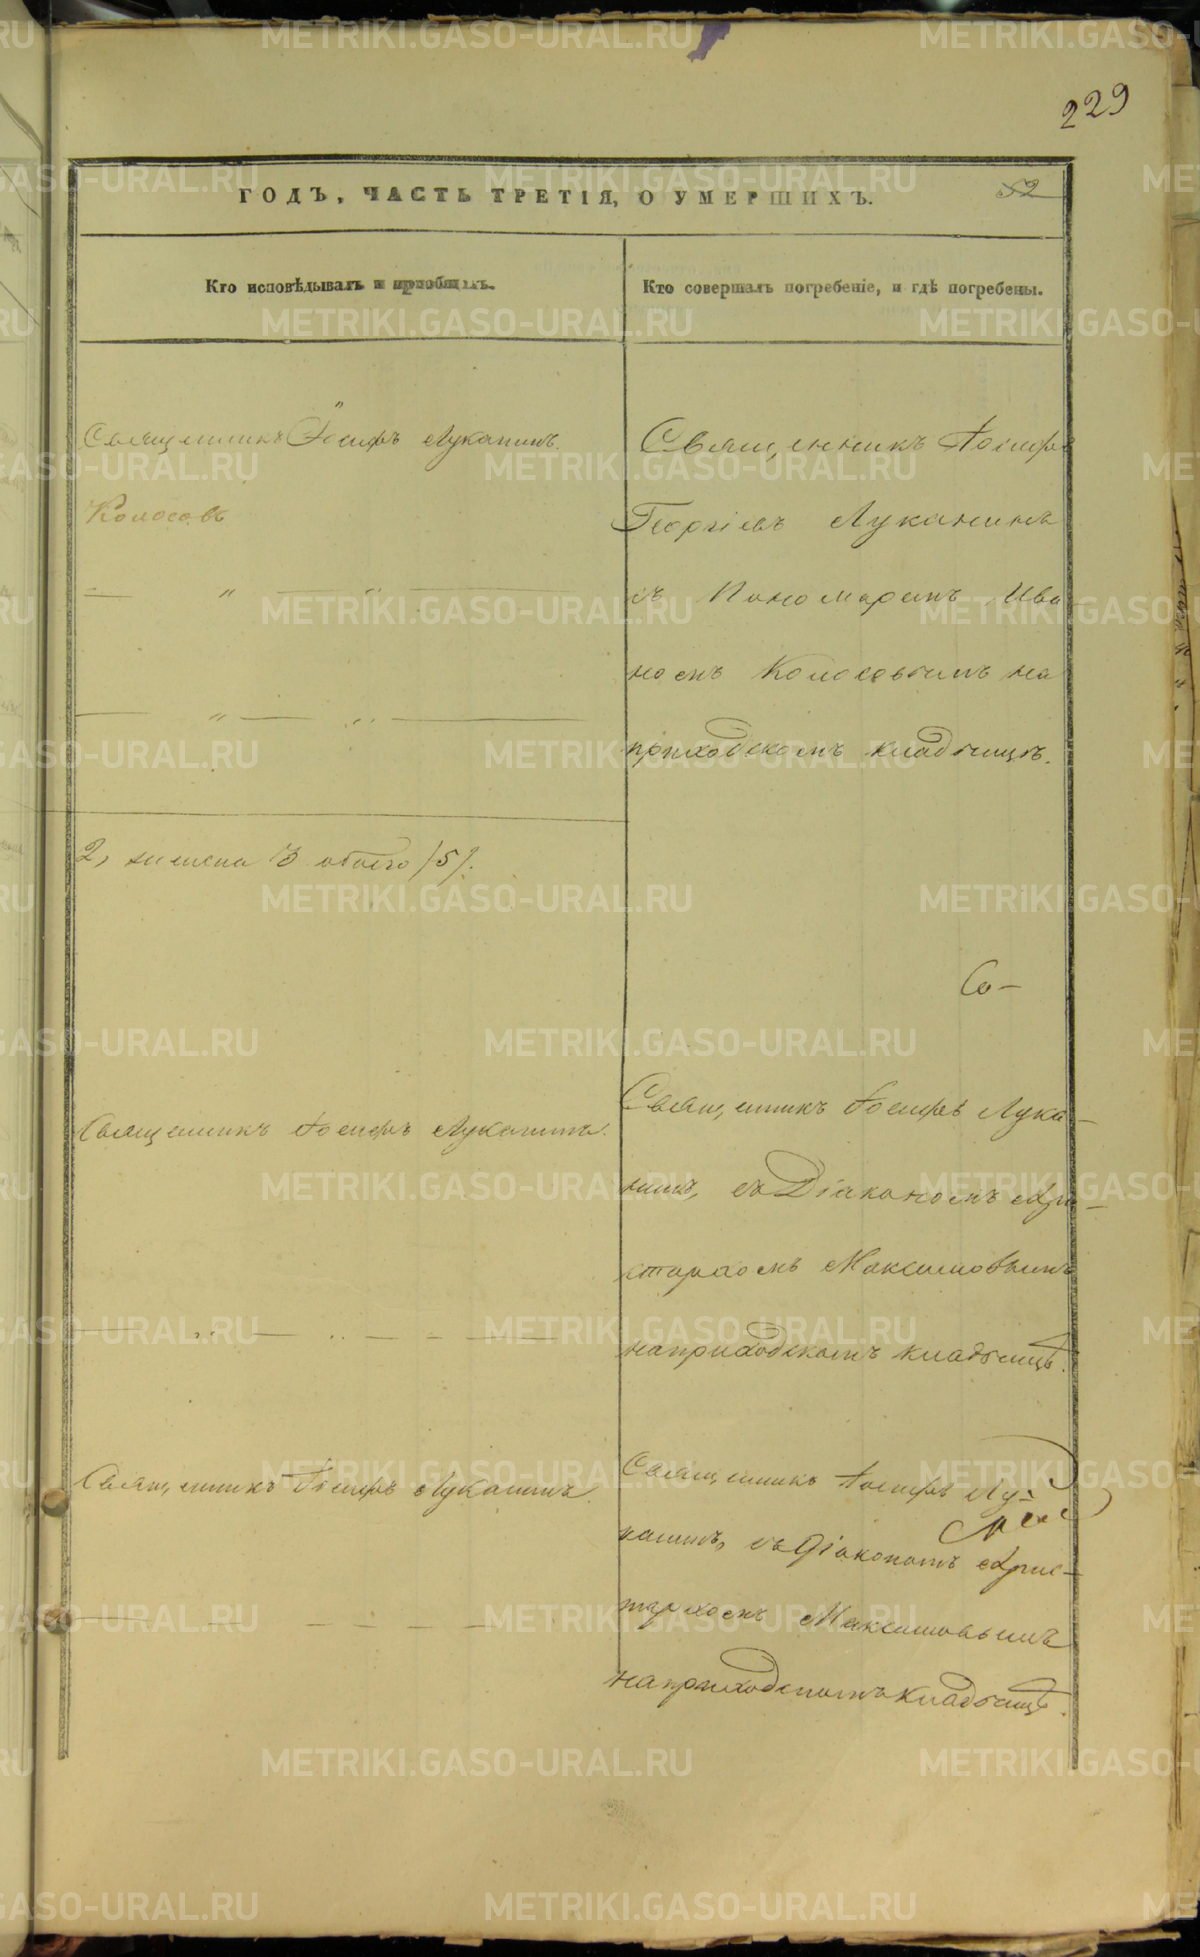 229
ГОДЪ, ЧАСТЬ ТРЕТІЯ, О УМЕРШИХЪ.
52
Кто исповѣдывалъ и пріобщалъ.
Кто совершалъ погребеніе, и гдѣ погребены.
Священникъ Іосифъ Луканинъ.
Колосовъ
2, женска 3 обоего /5/.
Священникъ Іосифъ Луканинъ.
Священникъ Іосифъ Луканинъ.
Священникъ Іосифъ
Георгіевъ Луканинъ
съ Пономаремъ Ива
номъ Колосовымъ на
приходскомъ кладбищѣ.
Со-
Священникъ Іосифъ Лука-
нинъ, съ Діакономъ Ари-
стархомъ Максимовымъ
на приходскомъ кладбищѣ.
Священникъ Іосифъ Лу-
канинъ, съ Діакономъ Арис-
тархомъ Максимовымъ
на приходскомъ кладбищѣ.
METRIKI.GASO-URAL.RU